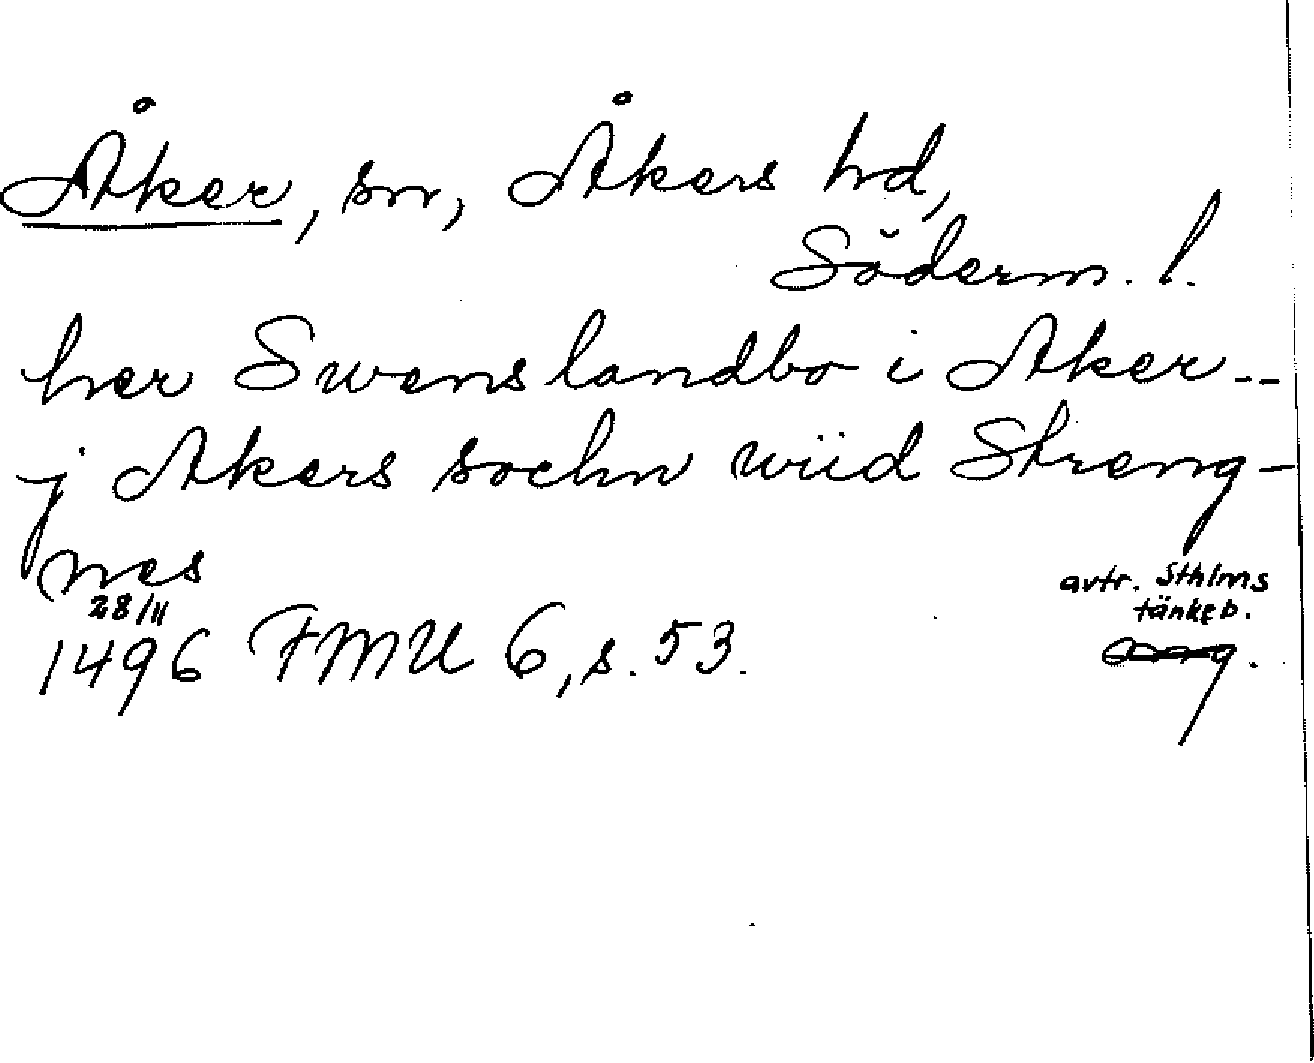 Åker, sn, Åkers hd,
Söderm. l.
her Swens landbo i Aker --
j Akers sochn wiid Streng-
nes
28/11
1496 FMU 6, s. 53.
avtr. Sthlms
tänkeb.